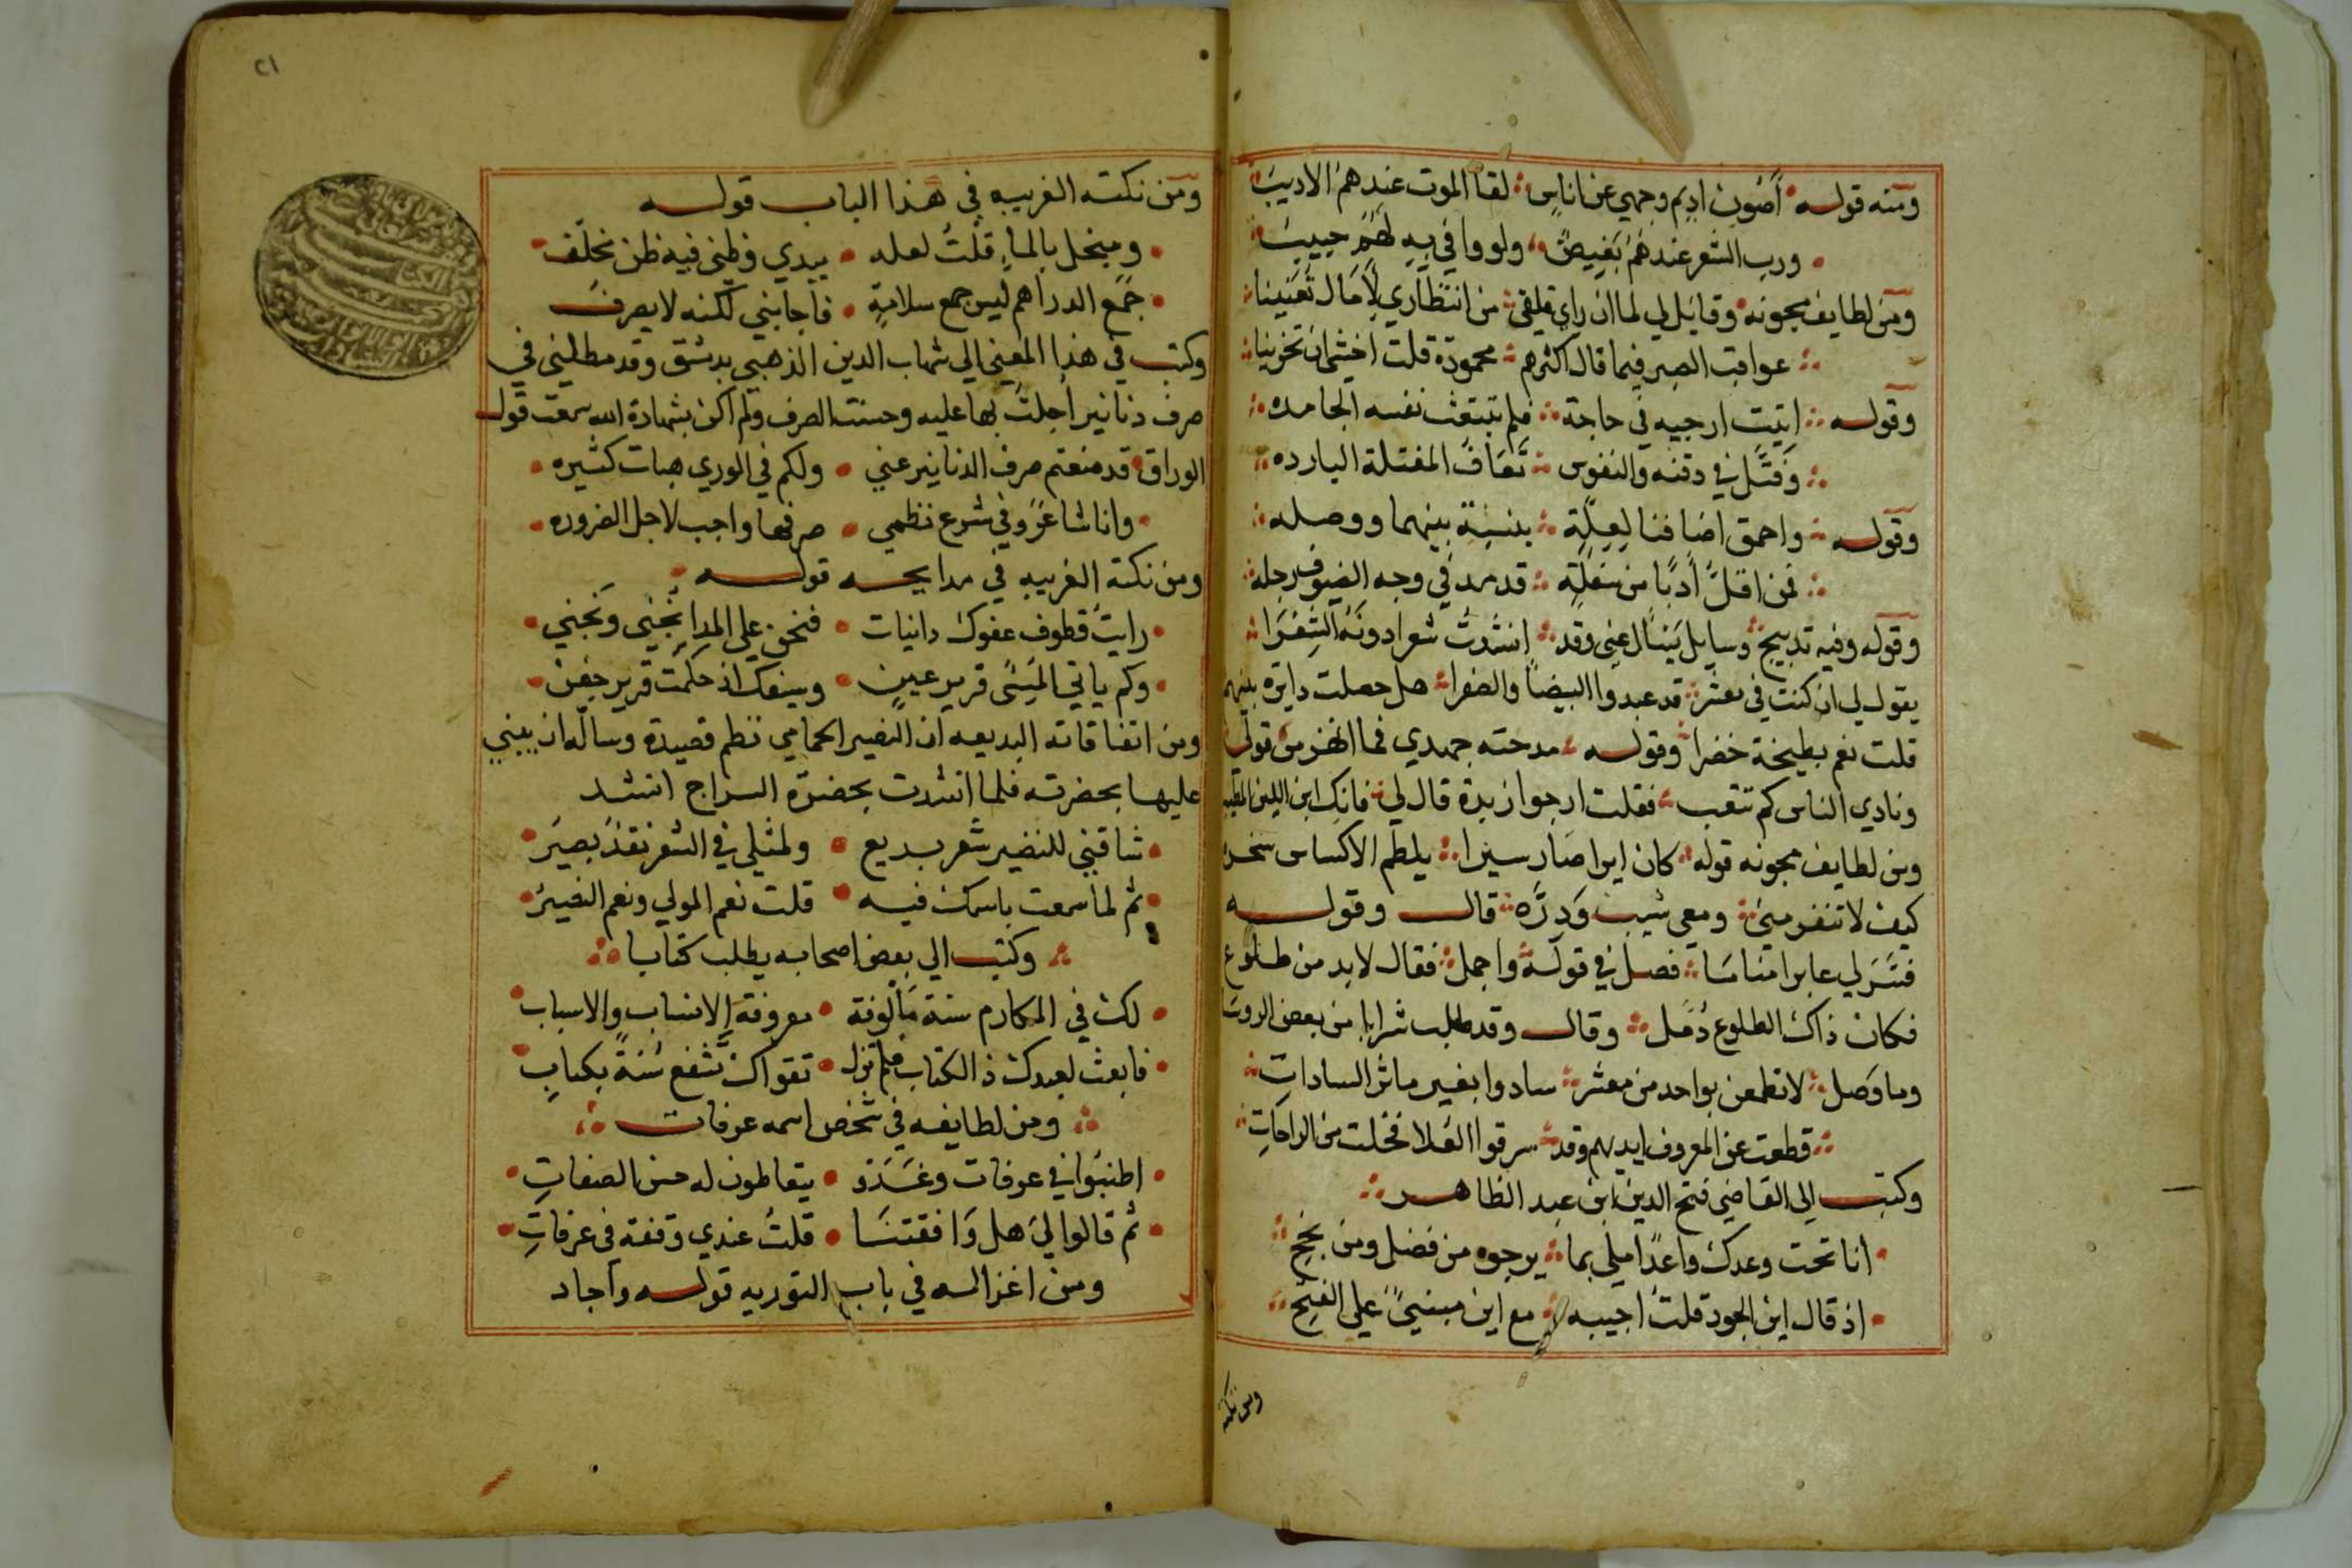 ومنه قوله اصون اديم وجهي عن اناس لقا الموت عندهم الاديب
ورب الشعر عندهم بغيض ولو وافي به لهم حبيب
ومن لطايف مجونه وقايل لي لما ان راي قلقي من انتظاري لآمال تعنينا
عواقب الصبر فيما قال اكثرهم محمودة قلت اخشي ان تخرينا
وقوله اتيت ارجيه في حاجة فلم تنبعث نفسه الجامده
وفتل في دقنه والنفوس تعاف المفتلة البارده
وقوله واحمق اضافنا لعلة بنسبة بينهما ووصله
فمن اقل ادبا من سفلة قد مد في وجه الضيوف رجله
وقوله وفيه تدبيج وسايل يسال عني وقد انشدت شعرا دونه الشعرا
يقول لي ان كنت في معشر قد عبدوا البيضا والصفرا هل حصلت دايرة بينهم
قلت نعم بطيخة خضرا وقوله مدحته جهدي فما اهتز من قولي
ونادي الناس كم تتعب فقلت ارجوا زبدة قال لي فانك ابن اللبن الطيب
ومن لطايف مجونه قوله كان ايرا صار سيرا يلطم الاكساس سخره
كيف لا تنفر مني ومعي شيب ودره قال وقوله
فسر لي عابر مناما فصل في قوله واجمل فقال لابد من طلوع
فكان ذاك الطلوع دمل وقال وقد طلب شرابا من بعض الروسا
وما وصل لا تطمعن بواحد من معشر سادوا بغير ماثر السادات
قطعت عن المعروف ايديهم وقد سرقوا العلا فخلت من الراحات
وكتب الي القاضي فتح الدين ابن عبد الظاهر
انا تحت وعدك واعدا ميلي بما يرجوه من فضل ومن نجح
اذ قال اين الجود قلت اجيبه مع اين مبني علي الفتح
ومن نكته
٢١
ومن نكته الغريبه في هذا الباب قوله
ومبخل بالمال قلت لعله يبدي وظني فيه ظن مخلف
جمع الدراهم ليس جمع سلامة فاجابني لكنه لا يصرف
وكتب في هذا المعني الي شهاب الدين الذهبي بدمشق وقد مطلني في
صرف دنانير احلت بها عليه وحسنت الصرف ولم اكن بشهادة الله سمعت قول
الوراق قد منعتم صرف الدنانير عني ولكم في الوري هبات كثيره
وانا شاعر وفي شرع نظمي صرفها واجب لاجل الضروره
ومن نكته الغريبه في مدايحه قوله
رايت قطوف عفوك دانيات فنحن علي المدا نجني ونجني
وكم ياتي المسي قرير عين وسيفك اذ حلمت قرير جفن
ومن اتفاقاته البديعه ان النصير الحمامي نظم قصيدة وساله ان يثني
عليها بحضرته فلما انشدت بحضرة السراج انشد
شاقني للنصير شعر بديع ولمثلي في الشعر نقد بصير
ثم لما سمعت باسمك فيه قلت نعم المولي ونعم النصير
وكتب الي بعض اصحابه يطلب كتابا
لك في المكارم سنة مالوفة معروفة الانساب والاسباب
فابعث لعبدك ذا الكتاب فلم تزل تقواك تشفع سنة بكتاب
ومن لطايفه في شخص اسمه عرفات
اطنبوا في عرفات وغدو يتعاطون له حسن الصفات
ثم قالوا لي هل وافقتنا قلت عندي وقفة في عرفات
ومن اغزاله في باب التوريه قوله واجاد